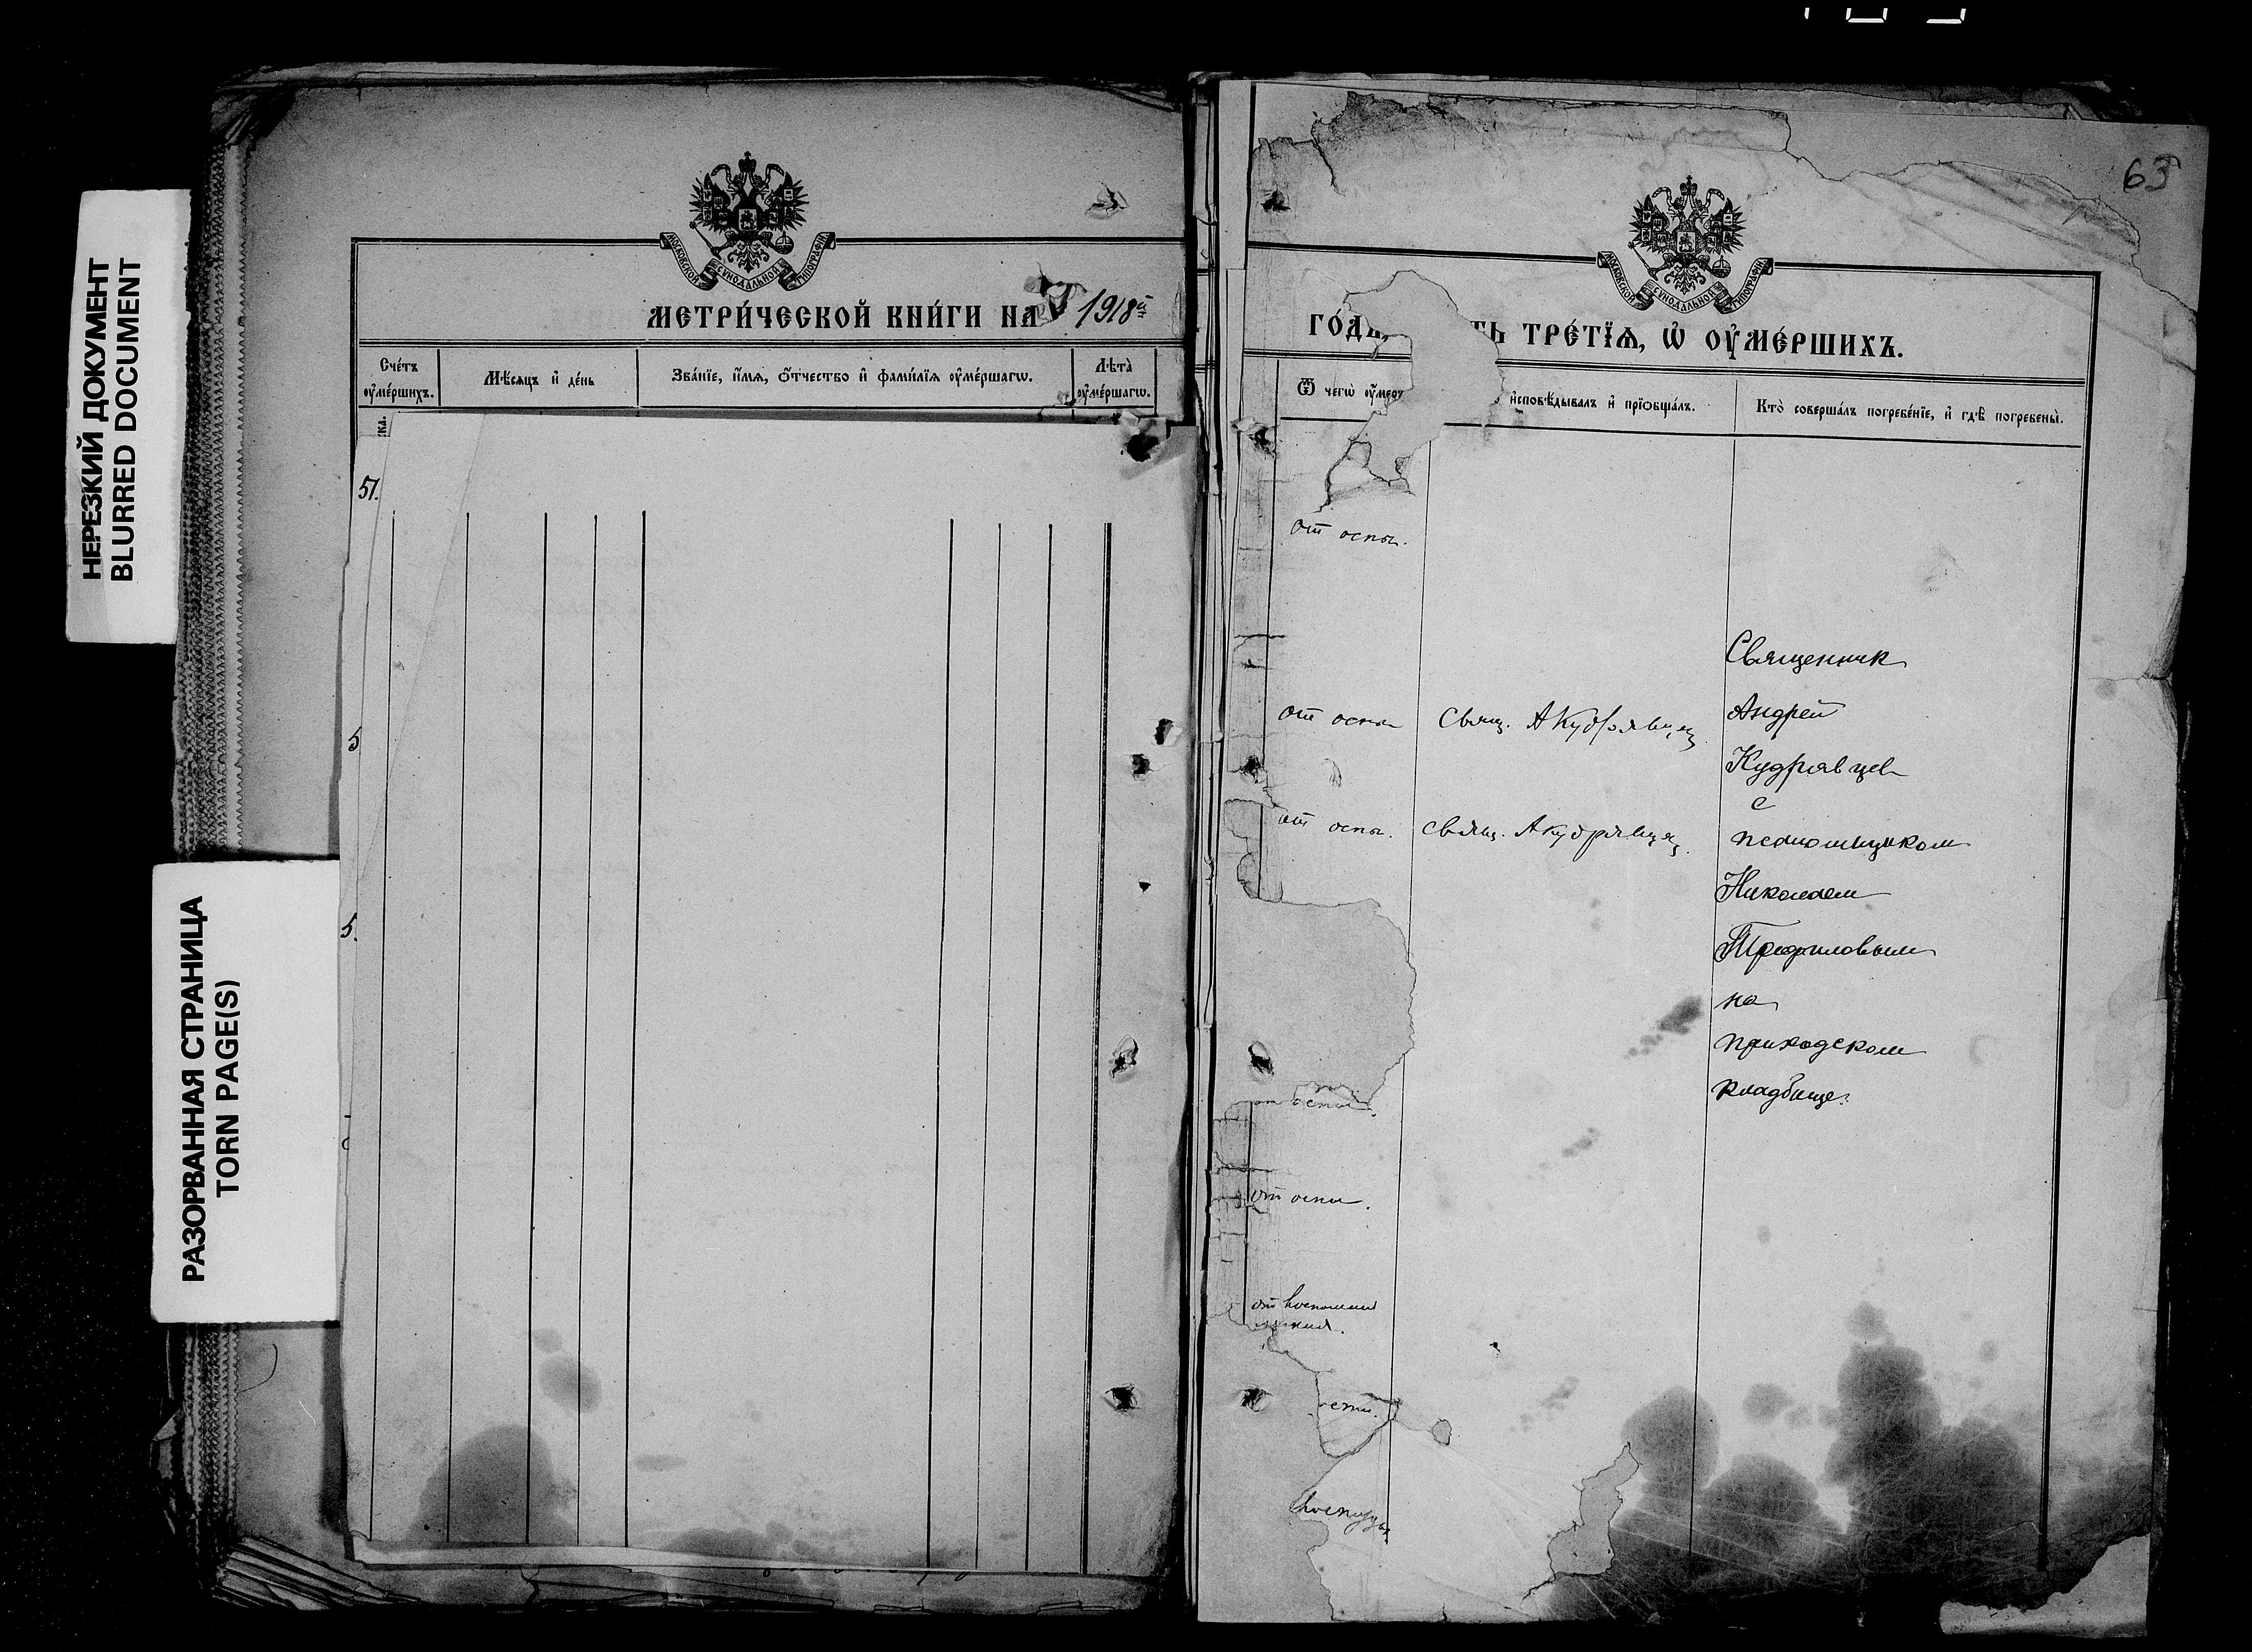 НЕРЕЗКИЙ ДОКУМЕНТ
BLURRED DOCUMENT
РАЗОРВАННАЯ СТРАНИЦА
TORN PAGE(S)
МОСКОВСКОЙ СѴНОДАЛЬНОЙ ТИПОГРАФІИ
МЕТРИ́ЧЕСКОЙ КНИ́ГИ НА 1918й
Сче́тъ ᲂу҆ме́ршихъ.
Мѣ́сѧцъ и҆ де́нь
Зва́нїе, и҆́мѧ, ѻ҆́тчество и҆ фами́лїѧ ᲂу҆ме́ршагѡ.
Лѣ́та ᲂу҆ме́ршагѡ.
ка.
51.
5
5.
63
МОСКОВСКОЙ СѴНОДАЛЬНОЙ ТИПОГРАФІИ
ГО́ДЪ, ТЬ ТРЕ́ТЇѦ, Ѡ҆ ОУ҆МЕ́РШИХЪ.
Ѿ чегѡ̀ ᲂу҆́мер
и҆сповѣ́дывалъ и҆ прїѡбща́лъ.
Кто̀ соверша́лъ погребе́нїе, и҆ гдѣ̀ погребены̀.
от оспы.
Священник
от оспы Свящ. А Кудрявцев Андрей
Кудрявцев
с
от оспы. Свящ. А Кудрявцев. псаломщиком
Николаем
Трефиловым
на
приходском
кладбище.
от оспы.
от воспаления